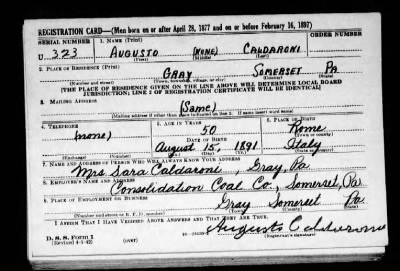 REGISTRATION CARD—(Men born on or after April 28, 1877 and on or before February 16, 1897)
SERIAL NUMBER 1. NAME (Print) ORDER NUMBER
U 323 AUGUSTO (NONE) CALDARONI
(First) (Middle) (Last)
2. PLACE OF RESIDENCE (Print)
GRAY SOMERSET PA
(Number and street) (Town, township, village, or city) (County) (State)
[THE PLACE OF RESIDENCE GIVEN ON THE LINE ABOVE WILL DETERMINE LOCAL BOARD
JURISDICTION; LINE 2 OF REGISTRATION CERTIFICATE WILL BE IDENTICAL]
3. MAILING ADDRESS
(Same)
[Mailing address if other than place indicated on line 2. If same insert word same]
4. TELEPHONE 5. AGE IN YEARS 6. PLACE OF BIRTH
(none) 50 Rome
DATE OF BIRTH (Town or county)
August 15, 1891 Italy
(Exchange) (Number) (Mo.) (Day) (Yr.) (State or country)
7. NAME AND ADDRESS OF PERSON WHO WILL ALWAYS KNOW YOUR ADDRESS
Mrs. Sara Caldaroni, Gray, Pa.
8. EMPLOYER'S NAME AND ADDRESS
Consolidation Coal Co., Somerset, Pa
9. PLACE OF EMPLOYMENT OR BUSINESS
Gray Somerset Pa.
(Number and street or R. F. D. number) (Town) (County) (State)
I AFFIRM THAT I HAVE VERIFIED ABOVE ANSWERS AND THAT THEY ARE TRUE.
D. S. S. Form 1
(Revised 4-1-42) (over) Augusto Caldaroni
(Registrant's signature)